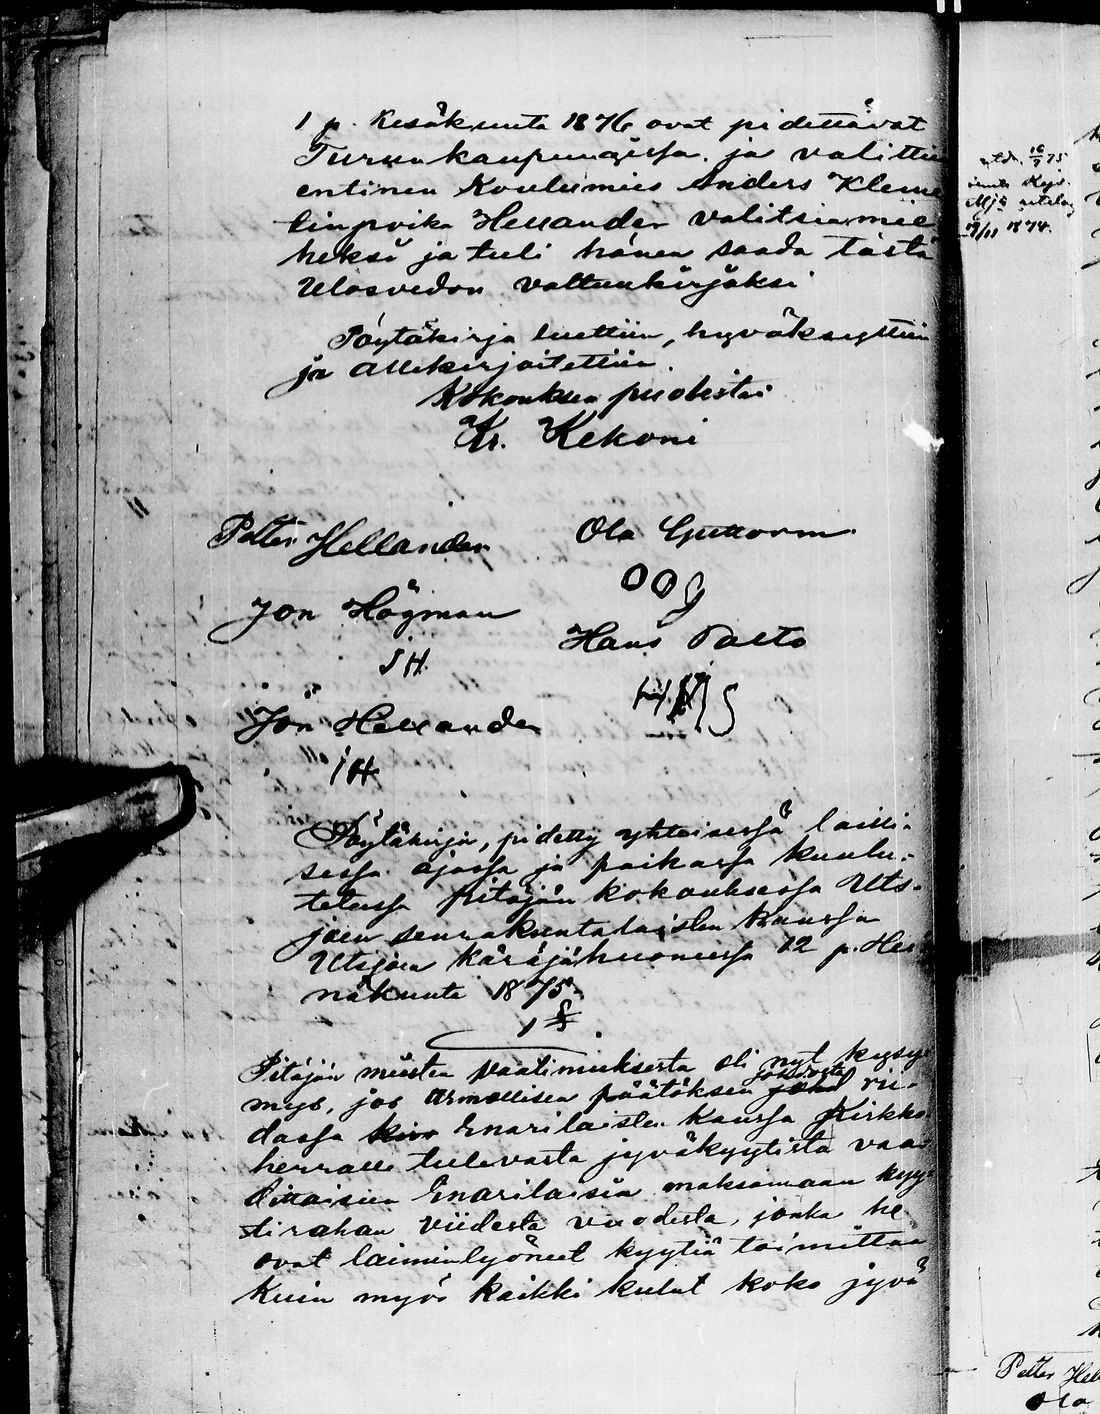 1 p. Kesäkuuta 1876 ovat pidettävät
Turun kaupungissa. ja valittiin
entinen Koulumies Anders Kleme
tinpoika Hellander valitsiamie
heksi ja tuli hänen saada tästä
Ulosvedon valtuukirjaksi
Pöytäkirja luettiin, hyväksyttiin
ja allekirjoitettiin.
Kokouksen puolesta:
Kr. Kekoni
Petter Hellander
Ola Guttorm
OOG
Jon Högman
JH.
Hans Palto
Jon Hellander
JH
Pöytäkirja, pidetty yhteisessä lailli-
sessa ajassa ja paikassa kuulu-
tetussa pitäjän kokouksessa Uts-
joen seurakuntalaisten kanssa
Utsjoen käräjähuoneessa 12 p. Hei
näkuuta 1875.
1 §
Pitäjän miesten vaatimuksesta oli nyt kysy-
mys, jos armollisen päätöksen johdosta rii-
dassa Enarilaisten kanssa Kirkko
herralle tulevasta jyväkyytistä vaa-
dittaisiin Enarilaisia maksamaan kyy-
tirahan viidestä vuodesta, jonka he
ovat laiminlyöneet kyytiä toimittaa
kuin myös kaikki kulut koko jyvä
utdr. 16/7 75
1874.
Petter Hel
Ola